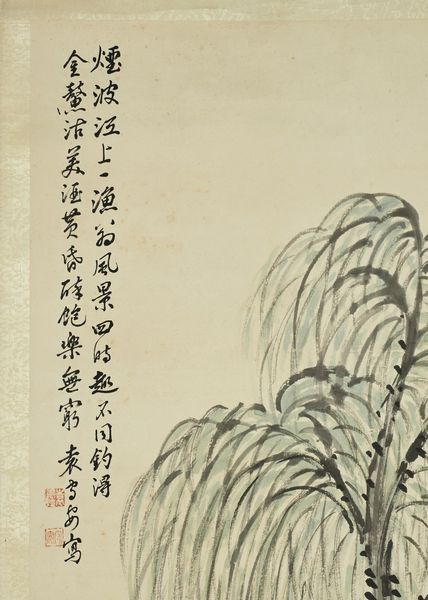 煙波江上一漁翁風景四時趣不同釣得
金鰲沽美酒黄昏醉飽樂無窮 袁雪安寫